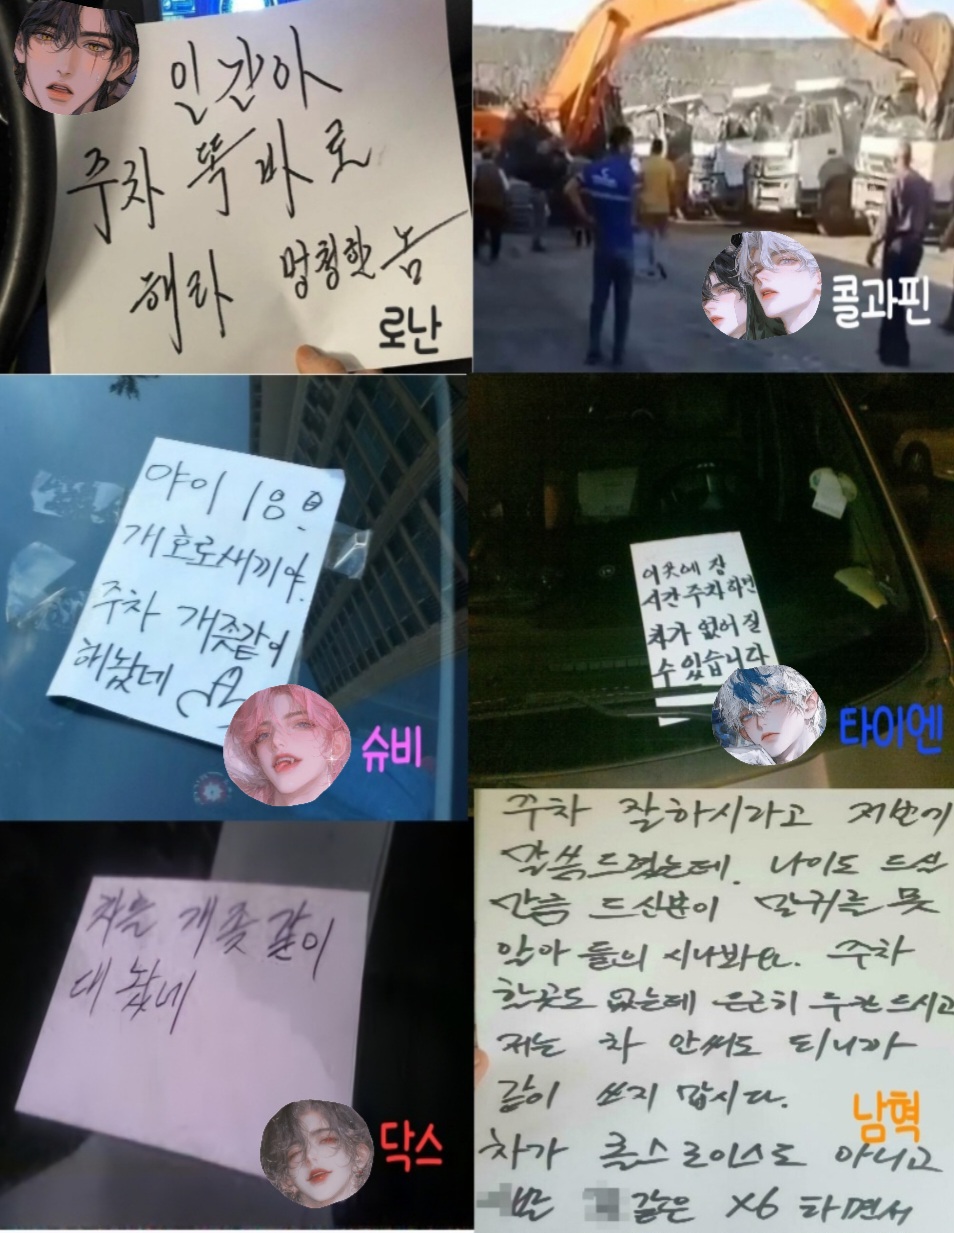 인간아
주차 똑바로
해라 멍청한 놈
로난
콜과핀
야이 18.
개호로새끼야.
주차 개좆같이
해놨네
슈비
이곳에 장
시간 주차하면
차가 없어질
수 있습니다
타이엔
차를 개좆같이
대놨네
닥스
주차 잘하시라고 저번에
말씀드렸는데. 나이도 드신
만큼 드신분이 말귀를 못
알아 들으시나봐요. 주차
한곳도 없는데 은근히 두칸 드시고
저는 차 안써도 되니까
같이 쓰지 맙시다.
남혁
차가 롤스로이스도 아니고
같은 X6 타면서